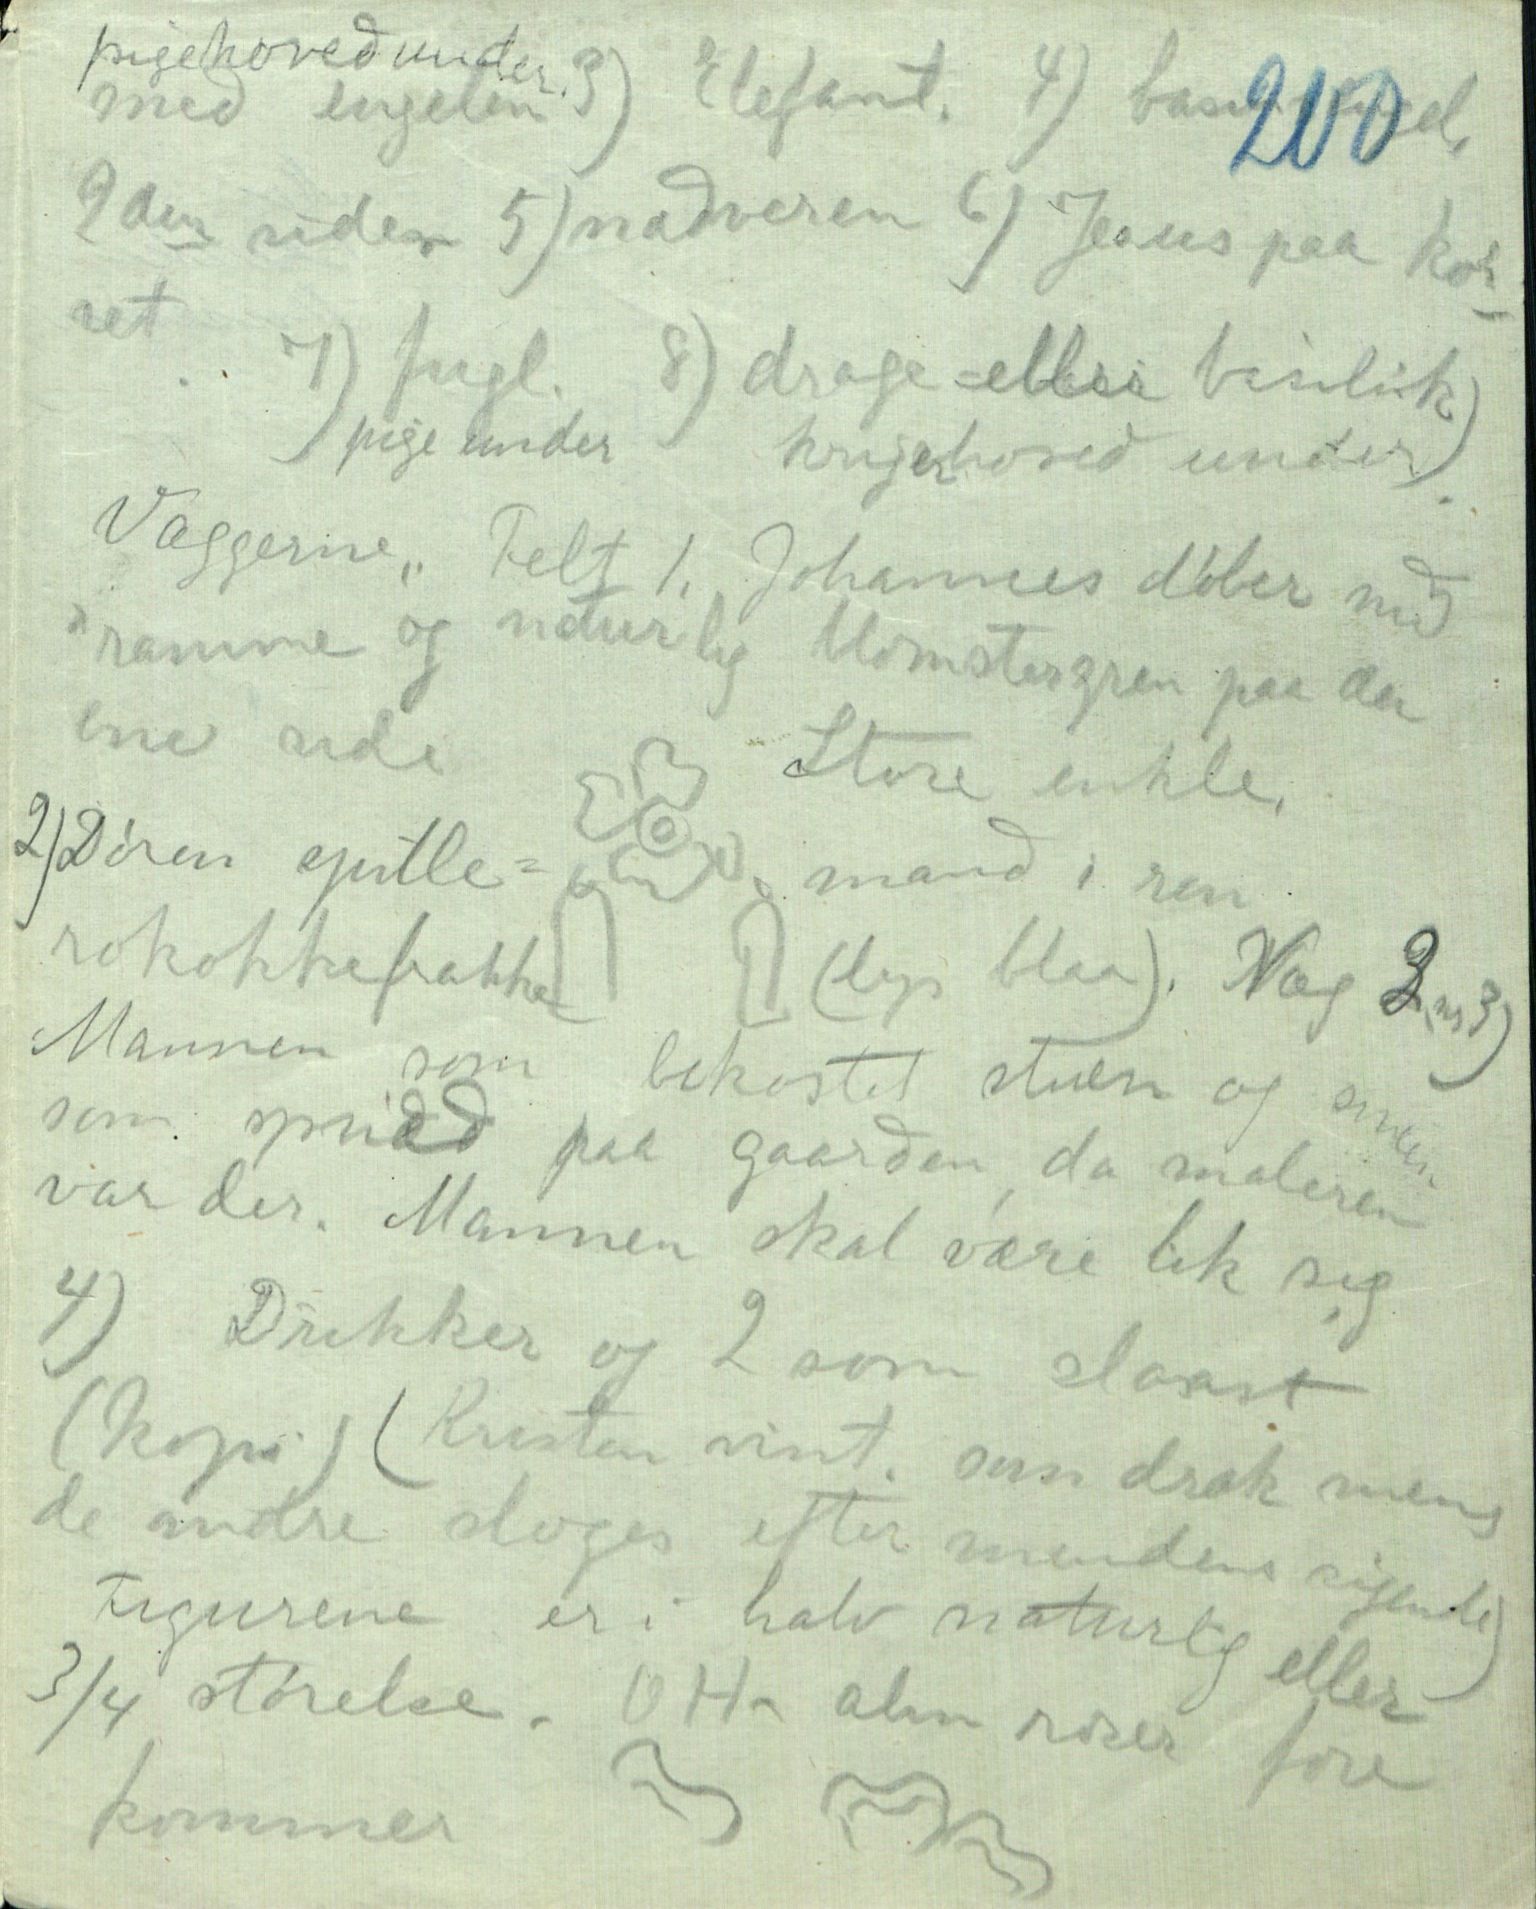 pigehoved under.
med engelen 3) Elefant. 4)
200
2den siden 5) nadveren 6) Jesus paa kor-
set. 7) fugl. 8) drage eller basilisk
pige under krigerhoved under).
Væggerne,, Felt 1. Johannes døber med
ramme og naturlig blomstergren paa den
ene side Store enkle.
2) Døren spille= mand i ren
rokokkofrakke (lys blaa). Væg 2. nr 3)
Mannen som bekostet stuen og
som paa gaarden, da maleren
var der. Mannen skal være lik sig
4) Drikker og 2 som slaast
(kopi) (Kristen som drak mens
de andre sloges efter sigende)
Figurene er i halv naturlig eller
3/4 størelse. OH- alm roser fore
kommer